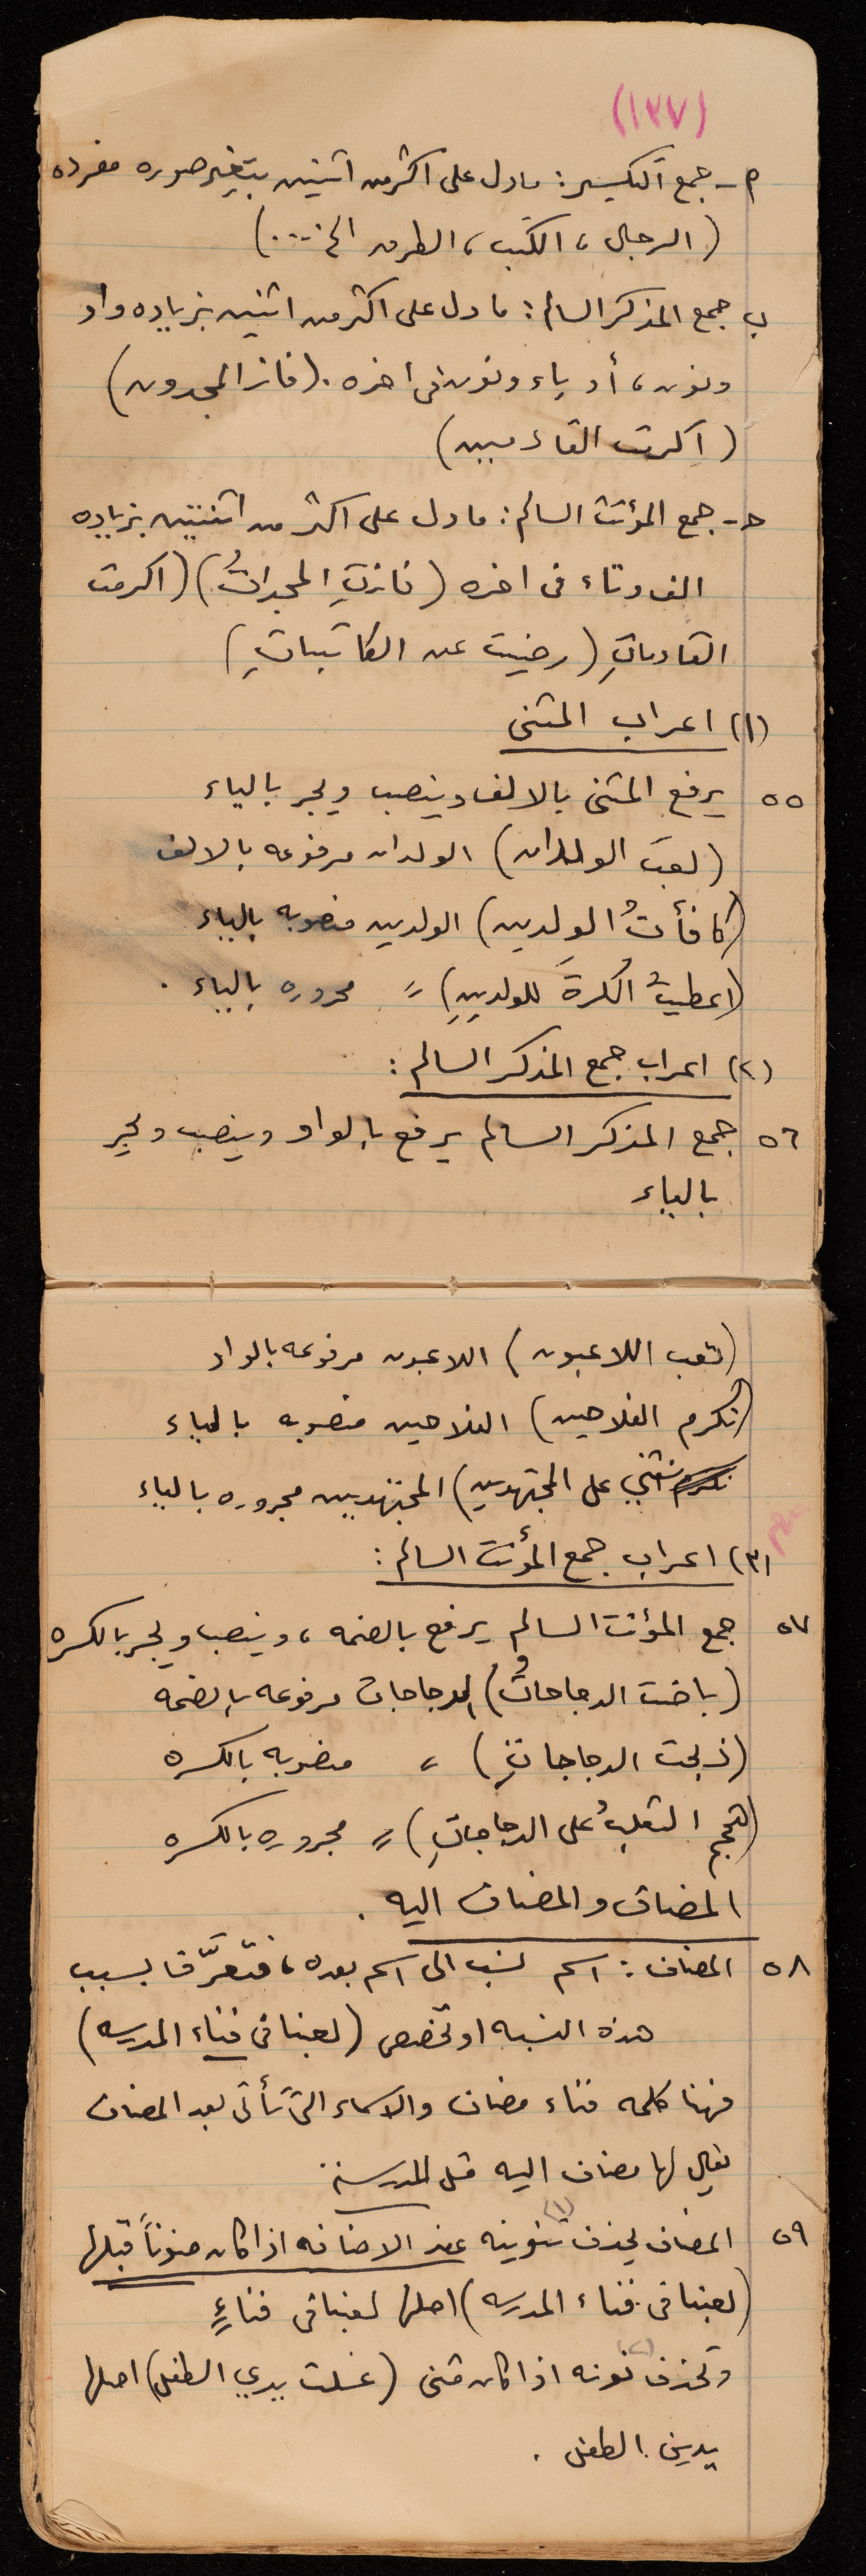 (١٣٧)
م - جمع التكسير: مادل على اكثر من اثنين بتغير صوره مفرده
(الرجال، الكتب، الطرق الخ....)
ب جمع المذكر السالم: مادل على اكثر من اثنين بزياده واو
ونون، أو ياء ونون فى اخره. (فاز المجدون)
(اكرمت القادمين)
حـ - جمع المؤنث السالم: مادل على اكثر من اثنتين بزياده
الف وتاء فى اخره (فازتِ المجداتُ) (اكرمت
القادماتِ) (رضيت عن الكاتباتِ)
(١) اعراب المثنى
٥٥ يرفع المثنى بالالف وينصب ويجر بالياء
(لعبَ الولدان) الولدان مرفوعه بالالف
(كافأتُ الولدين) الولدين منصوبه بالياء
(اعطيتُ الكرةَ للولدينِ)〃 مجروره بالياء .
(٢) اعراب جمع المذكر السالم:
٥٦ جمع المذكر السالم يرفع بالواو وينصب ويجر
بالياء
(تعب اللاعبون) اللاعبون مرفوعه بالواو
(نكرم الفلاحين) الفلاحين منصوبه بالياء
نثني على المجتهدين) المجتهدين مجروره بالياء
(٣) اعراب جمع المؤنث السالم:
٥٧ جمع المؤنث السالم يرفع بالضمه، وينصب ويجر بالكسره
(باضت الدجاجاتُ) الدجاجات مرفوعه بالضمه
(ذبحت الدجاجاتِ) 〃 منصوبه بالكسره
(هجم الثعلبُ على الدجاجاتِ) 〃 مجروره بالكسره
المضاف والمضاف اليه .
٥٨ المضاف: اسم نسب الى اسم بعده، فتعرَّف بسبب
هذه النسبه او تخصص (لعبنا فى فناء المدرسه)
فهنا كلمه فناء مضاف والاسماء التى تأتى بعد المضاف
يقال لها مضاف اليه مثل المدرسة
٥٩ المضاف يحذف تنوينه (١) عند الاضافه اذا كان منوناً قبلها
(لعبنا فى فناء المدرسه) اصلها لعبنا فى فناءٍ
وتحذف نونه (٢) اذا كان مثنى (غسلت يدي الطفل) اصلها
يدين الطفل .